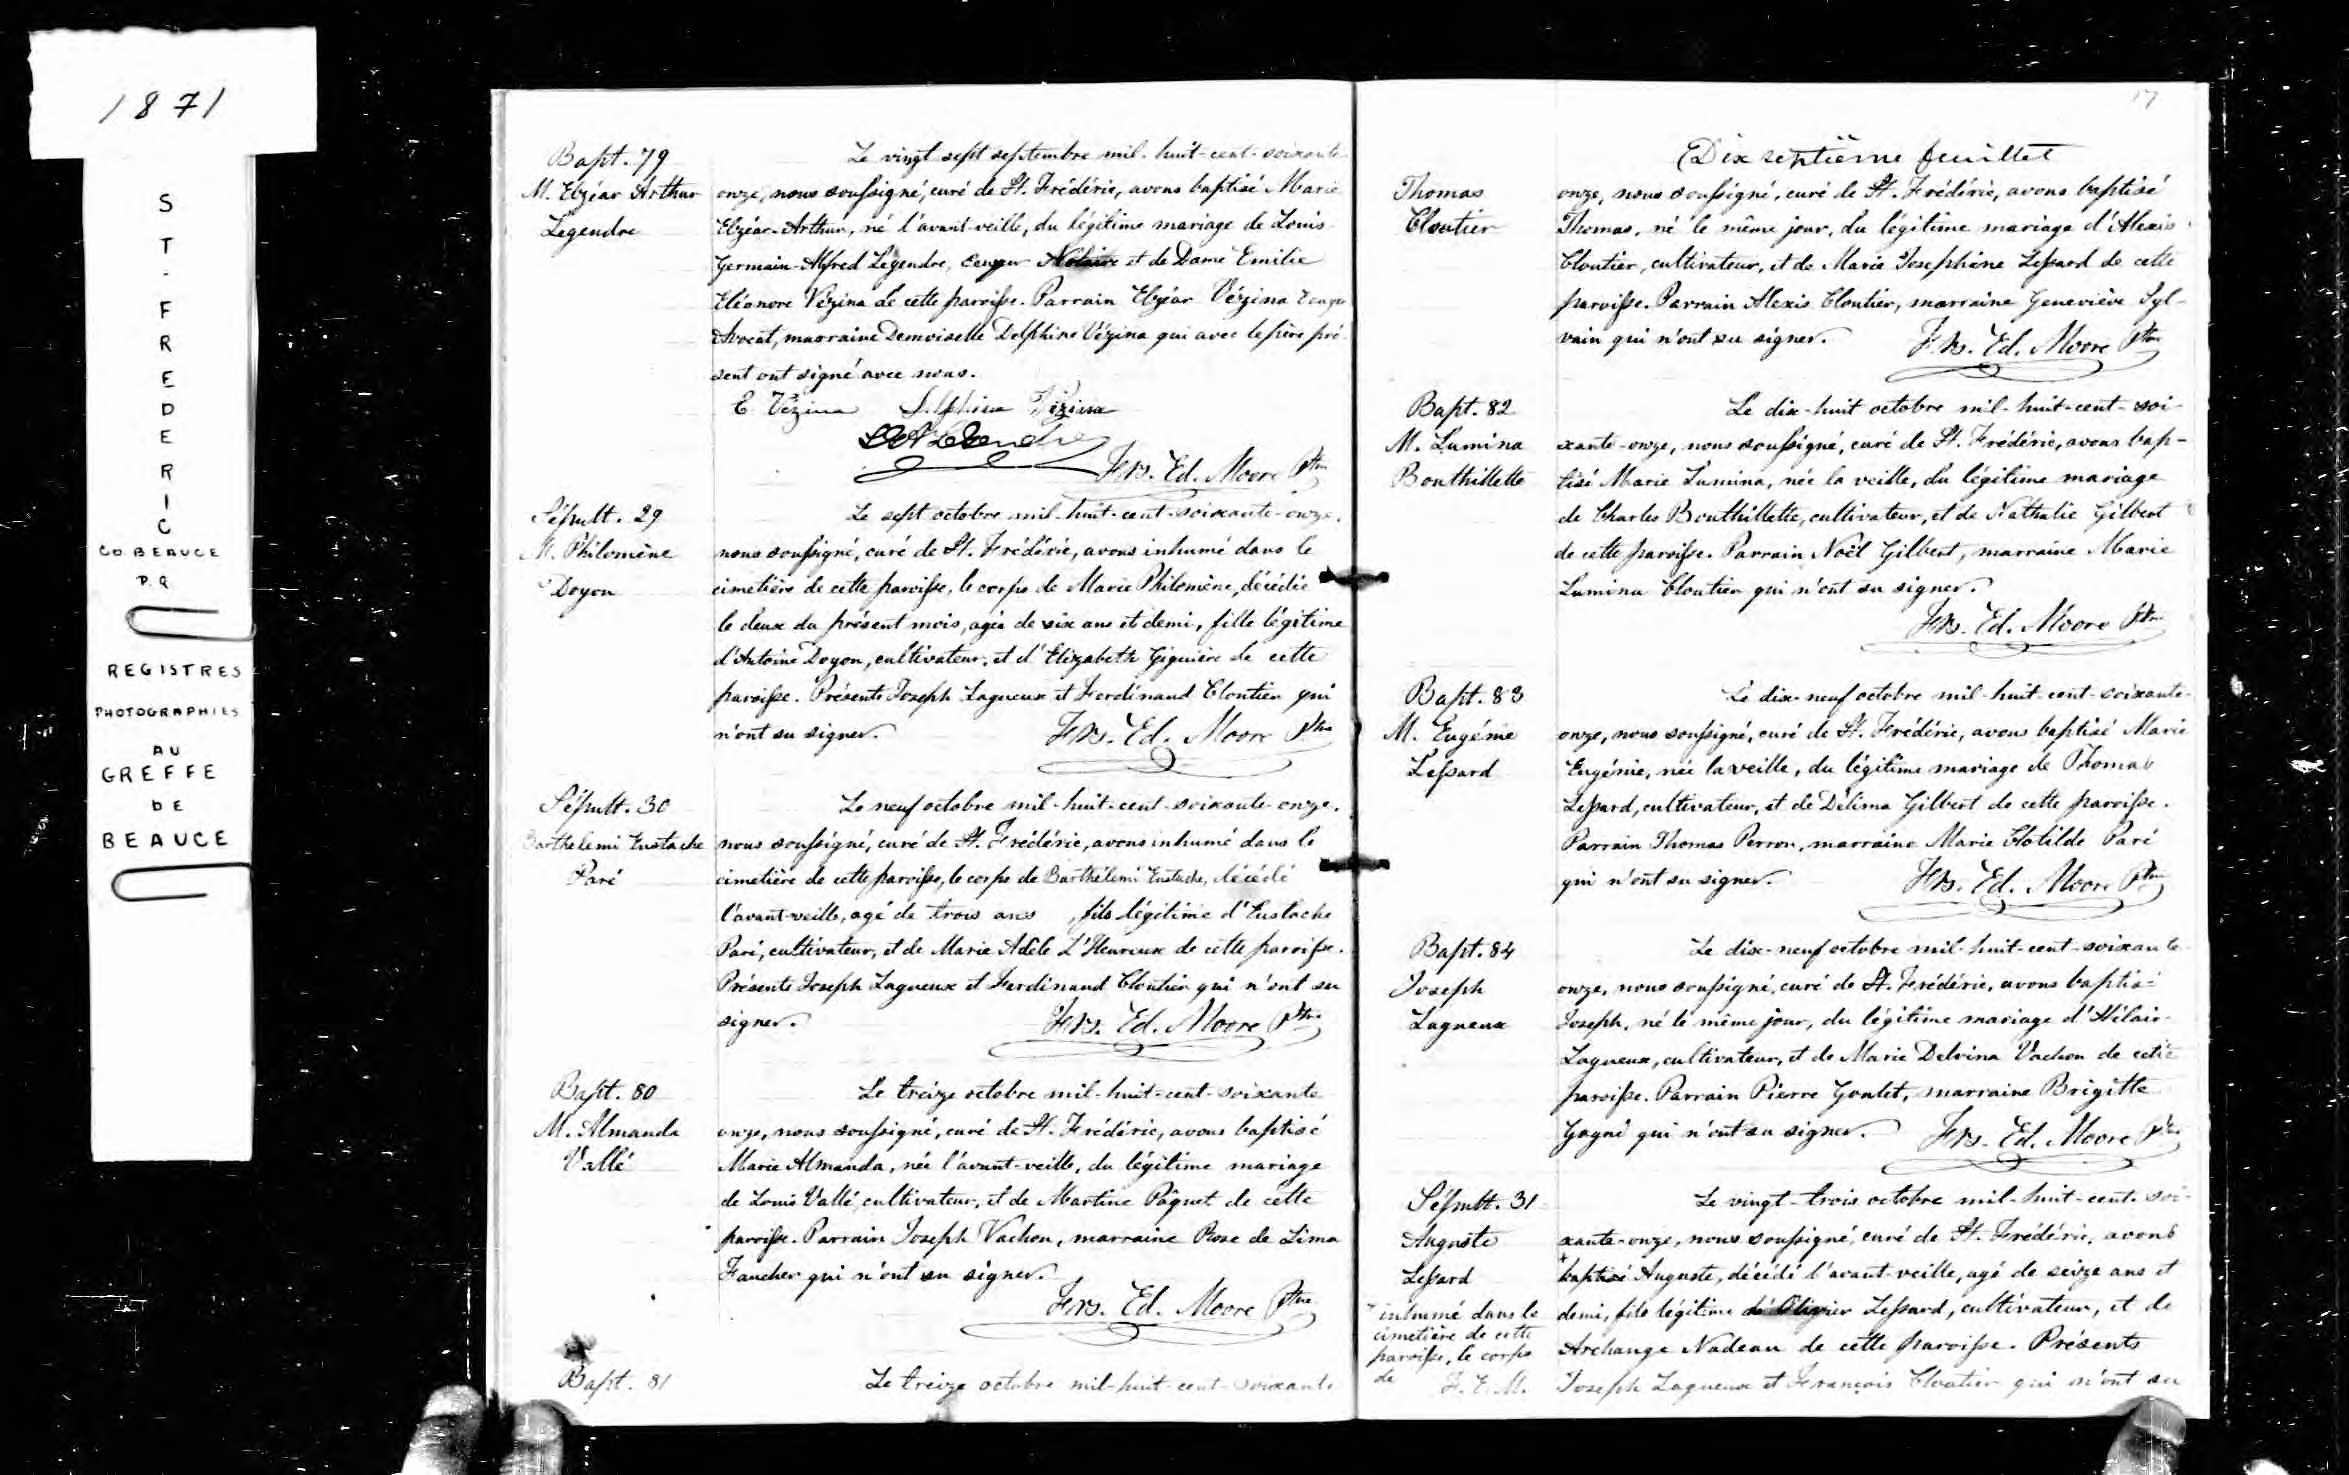 1871
ST. FREDERIC
CO. BEAUCE
P.Q.
REGISTRES
PHOTOGRAPHIES
AU
GREFFE
DE
BEAUCE
Bapt. 79
M. Elzéar Arthur
Légendre
Le vingt sept septembre mil-huit-cent-soixante
onze, nous soussigné, curé de St. Frédéric, avons baptisé Marie
Elzéar-Arthur, né l'avant-veille, du légitime mariage de Louis
Germain-Alfred Légendre, Ecuyer Notaire et de Dame Emilie
Eléonore Vézina de cette paroisse. Parrain Elzéar Vézina Ecuyer
Avocat, marraine Demoiselle Delphine Vézina qui avec le père pré-
sent ont signé avec nous.
E. Vézina Delphine Vézina
Frs. Ed. Moore Ptre
Sépult. 29
M. Philomène
Doyon
Le sept octobre mil-huit-cent-soixante-onze,
nous soussigné, curé de St. Frédéric, avons inhumé dans le
cimetière de cette paroisse, le corps de Marie Philomène, décédée
le deux du présent mois, agée de six ans et demi, fille légitime
d'Antoine Doyon, cultivateur, et d'Elizabeth Giguière de cette
paroisse. Présents Joseph Lagueux et Ferdinand Cloutier qui
n'ont su signer. Frs. Ed. Moore Ptre
Sépult. 30
Barthelemi Eustache
Paré
Le neuf octobre mil-huit-cent-soixante-onze,
nous soussigné, curé de St. Frédéric, avons inhumé dans le
cimetière de cette paroisse, le corps de Barthélemi Eustache, décédé
l'avant-veille, agé de trois ans , fils légitime d'Eustache
Paré, cultivateur, et de Marie Adèle L'Heureux de cette paroisse.
Présents Joseph Lagueux et Ferdinand Cloutier qui n'ont su
signer. Frs. Ed. Moore Ptre
Bapt. 80
M. Almanda
Vallé
Le treize octobre mil-huit-cent-soixante
onze, nous soussigné, curé de St. Frédéric, avons baptisé
Marie Almanda, née l'avant-veille, du légitime mariage
de Louis Vallé cultivateur, et de Martine Pâquet de cette
paroisse. Parrain Joseph Vachon, marraine Rose de Lima
Faucher qui n'ont su signer.
Frs. Ed. Moore Ptre
Bapt. 81
Le treize octobre mil-huit-cent-soixante
17
Dix septième feuillet
Thomas
Cloutier
onze, nous soussigné, curé de St. Frédéric, avons baptisé
Thomas, né le même jour, du légitime mariage d'Alexis
Cloutier, cultivateur, et de Marie Josephine Lessard de cette
paroisse. Parrain Alexis Cloutier, marraine Geneviève Syl-
vain qui n'ont su signer. Frs. Ed. Moore Ptre
Bapt. 82
M. Lumina
Bouthillette
Le dix-huit octobre mil-huit-cent-soi-
xante-onze, nous soussigné, curé de St. Frédéric, avons bap-
tisé Marie Lumina, née la veille, du légitime mariage
de Charles Bouthillette, cultivateur, et de Nathalie Gilbert
de cette paroisse. Parrain Noël Gilbert, marraine Marie
Lumina Cloutier qui n'ont su signer.
Frs. Ed. Moore Ptre
Bapt. 83
M. Eugénie
Lessard
Le dix-neuf octobre mil-huit-cent-soixante-
onze, nous soussigné, curé de St. Frédéric, avons baptisé Marie
Eugénie, née la veille, du légitime mariage de Thomas
Lessard, cultivateur, et de Délima Gilbert de cette paroisse.
Parrain Thomas Perron, marraine Marie Clotilde Paré
qui n'ont su signer. Frs. Ed. Moore Ptre
Bapt. 84
Joseph
Lagueux
Le dix-neuf octobre mil-huit-cent-soixante
onze, nous soussigné, curé de St. Frédéric, avons baptisé
Joseph, né le même jour, du légitime mariage d'Hélair
Lagueux, cultivateur, et de Marie Delvina Vachon de cette
paroisse. Parrain Pierre Goulet, marraine Brigitte
Gagné qui n'ont su signer. Frs. Ed. Moore Ptre
Sépult. 31
Auguste
Lessard
Le vingt-trois octobre mil-huit-cent-soi-
xante-onze, nous soussigné, curé de St. Frédéric, avons
*baptisé Auguste, décédé l'avant-veille, agé de seize ans et
demi, fils légitime d'Olivier Lessard, cultivateur, et de
Archange Nadeau de cette paroisse. Présents
Joseph Lagueux et François Cloutier qui n'ont su
*inhumé dans le
cimetière de cette
paroisse, le corps
de F. E. M.